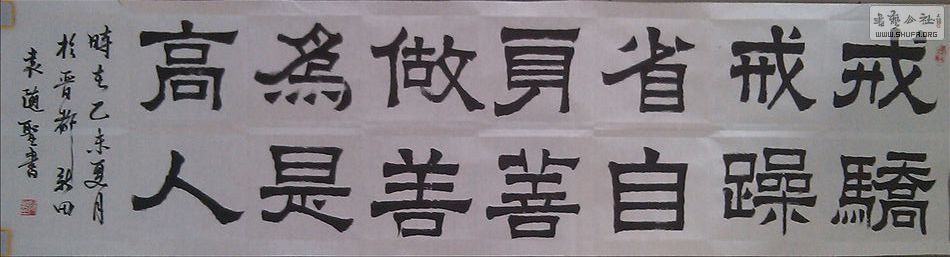 戒驕
戒躁
省自
頁善
做善
為是
高人
時在乙未夏月
於晉都新田
袁隨聖書
書藝公社
WWW.SHUFA.ORG